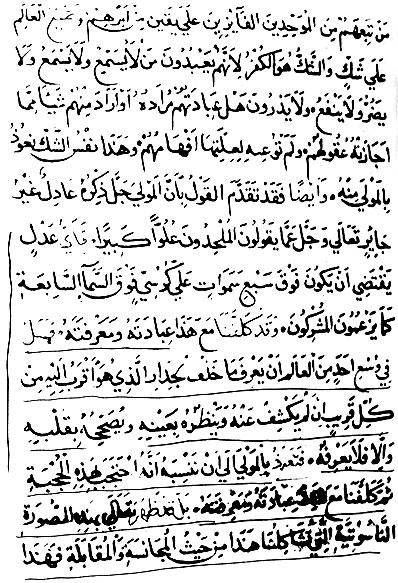 من تبعهم من الموحدين الفايزين علي يقين من ابرهم وجميع العالم
علي شك والشك هو الكفر لانهم يعبدون من لا يسمع ولا ينفع ولا
يضر ولا ينفع ولا يدرون هل عبادتهم مراده او اراد منهم شيا مما
اجازته عقولهم ولم توعيه لعلتها افهامهم وهذا نفس الشك نعوذ
بالمولي منه وايضا فقد تقدم القول بان المولي جل ذكره عادل غير
جاير تعالي وجل عما يقولون الملحدون علوا كبيرا فاي عدل
يقتضي ان يكون فوق سبع سموات علي كرسي فوق السما السابعة
كما يزعمون المشركون وقد كلفنا مع هذا عبادته ومعرفته فهل
في وسع احد من العالم ان يعرف ما خلف جدار الذي هو اقرب اليه من
كل قريب ان لم يكشف عنه وينظره بعينيه ويصححه بقلبه
والا فلا يعرفه فنعوذ بالمولي ان ننسبه انه احتجب بهذه الحجبة
ثم كلفنا مع عبادته ومعرفته بل ظهر بهذه الصورة
الناسوتية كلفنا هذا من حيث المجانسة والمقابلة فهذا